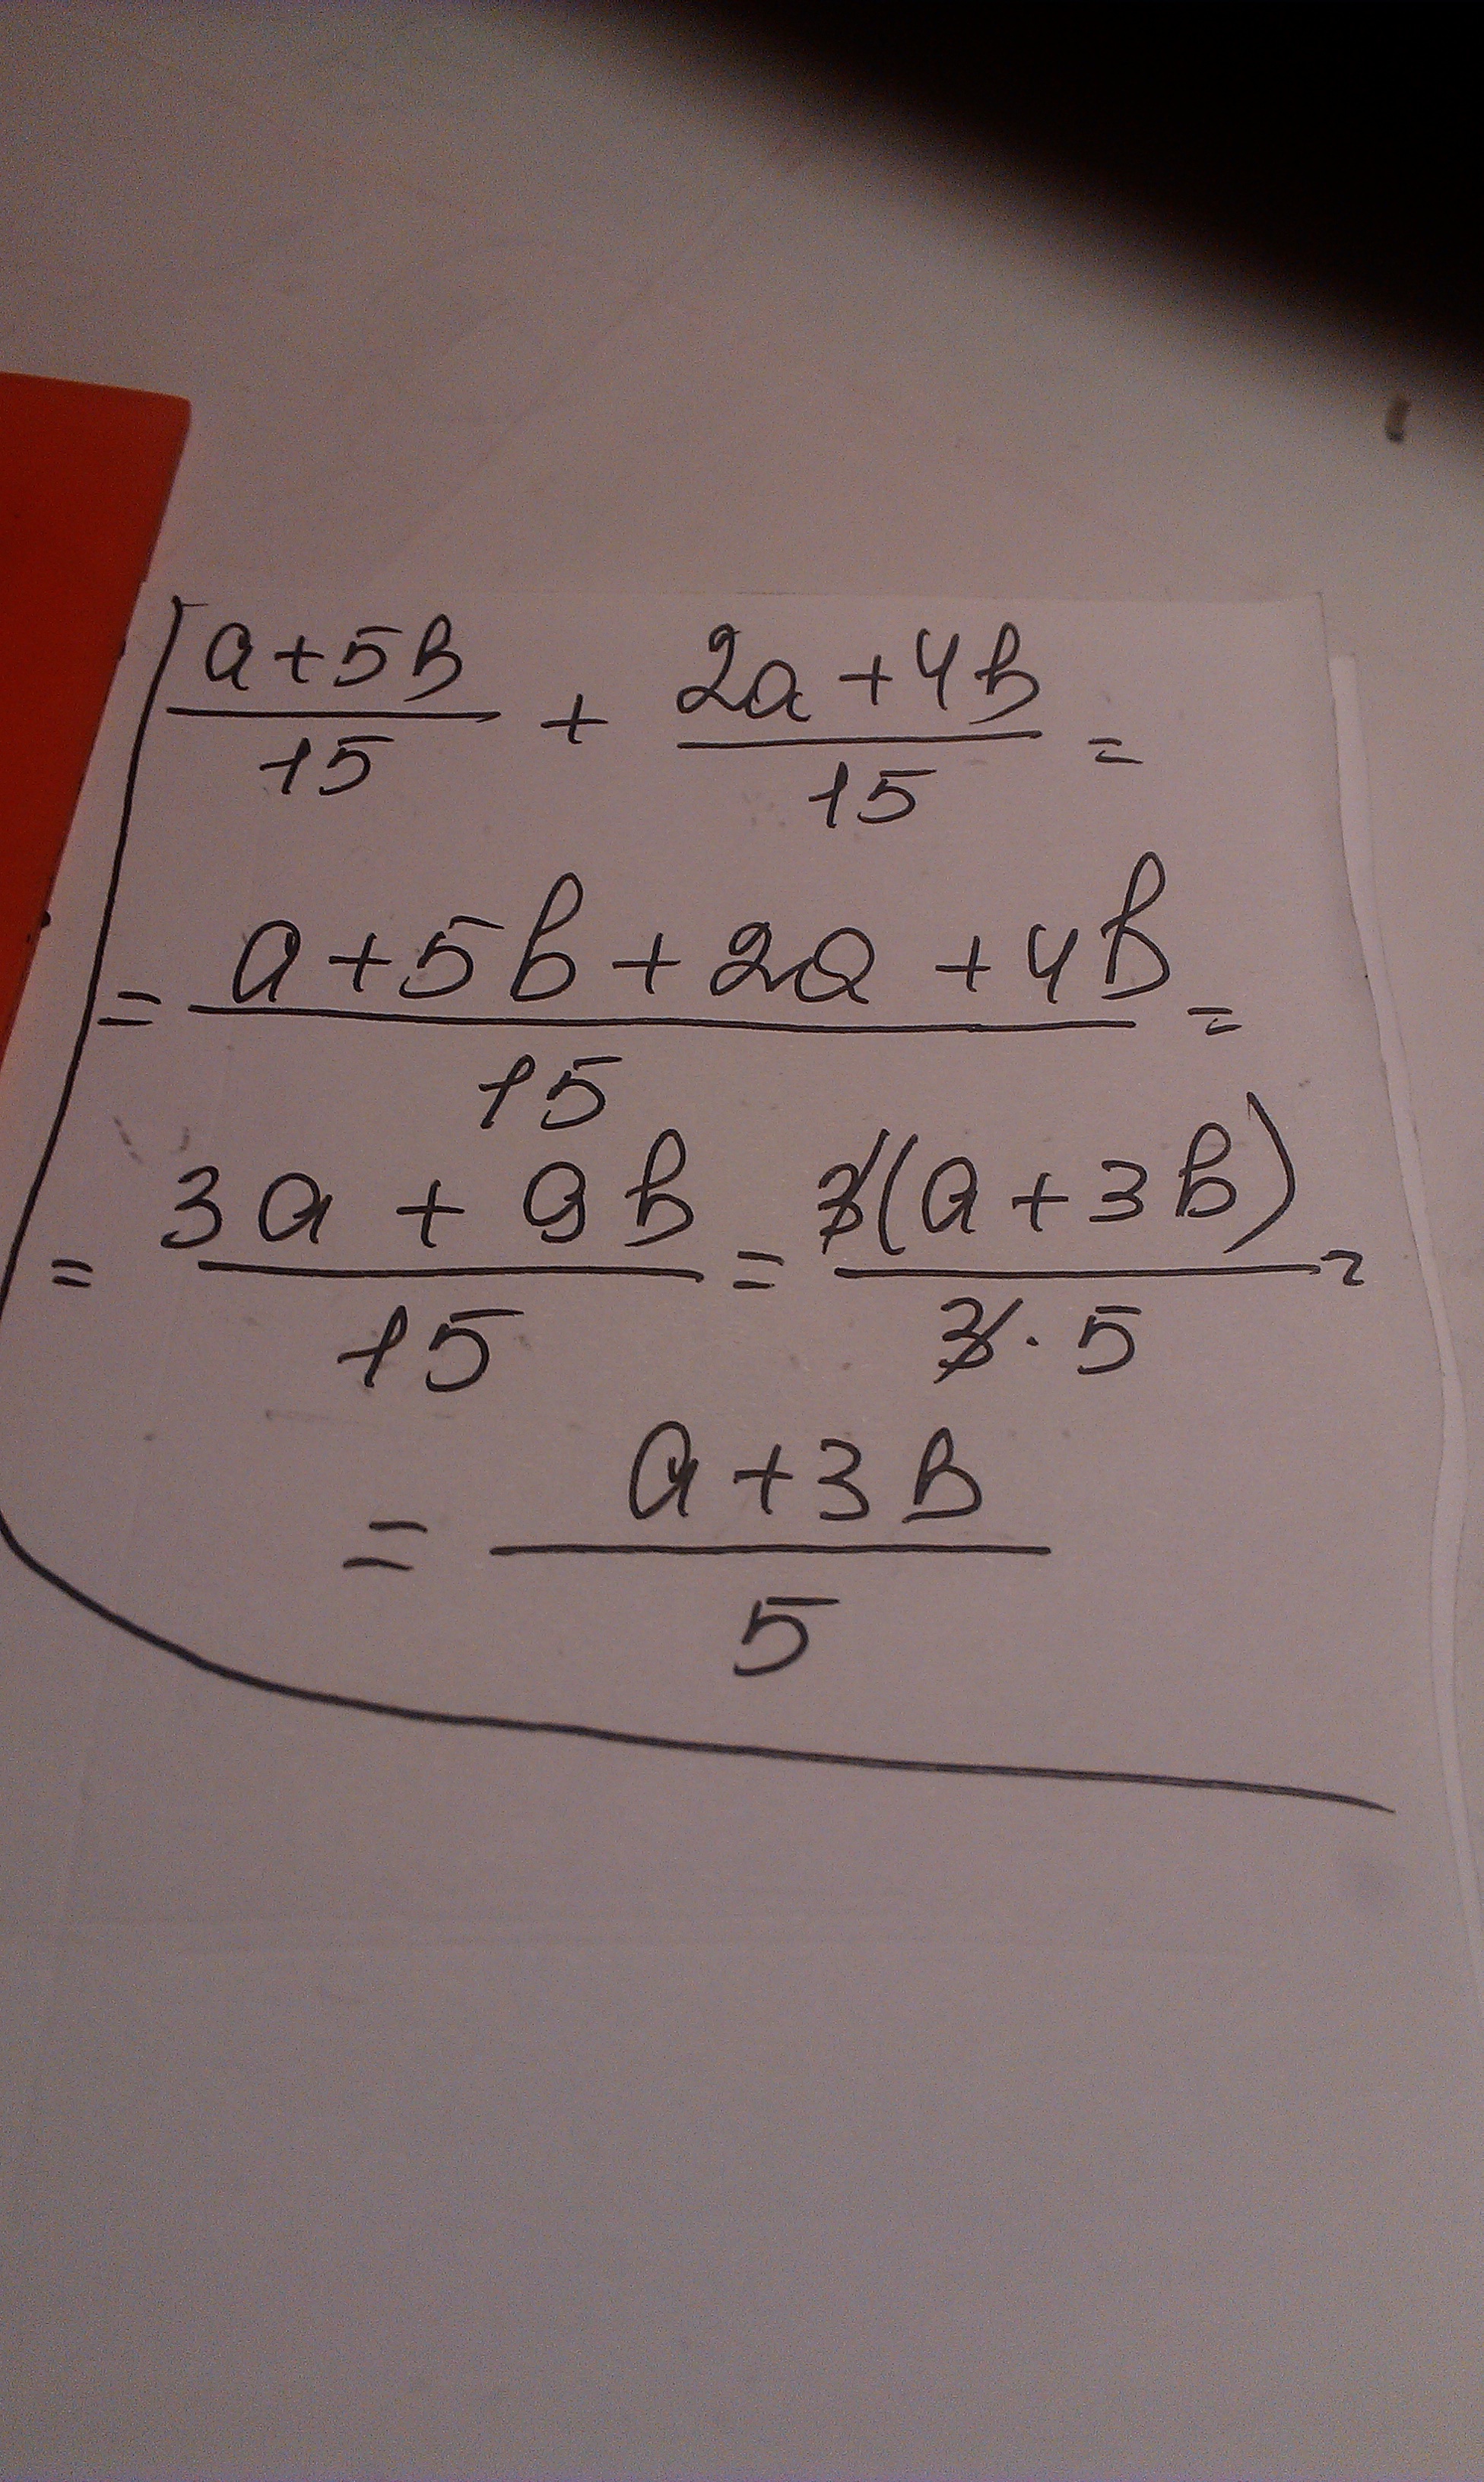 (a+5b)/15 + (2a+4b)/15 =
= (a+5b+2a+4b)/15 =
= (3a+9b)/15 = 3(a+3b)/(3·5) =
= (a+3b)/5